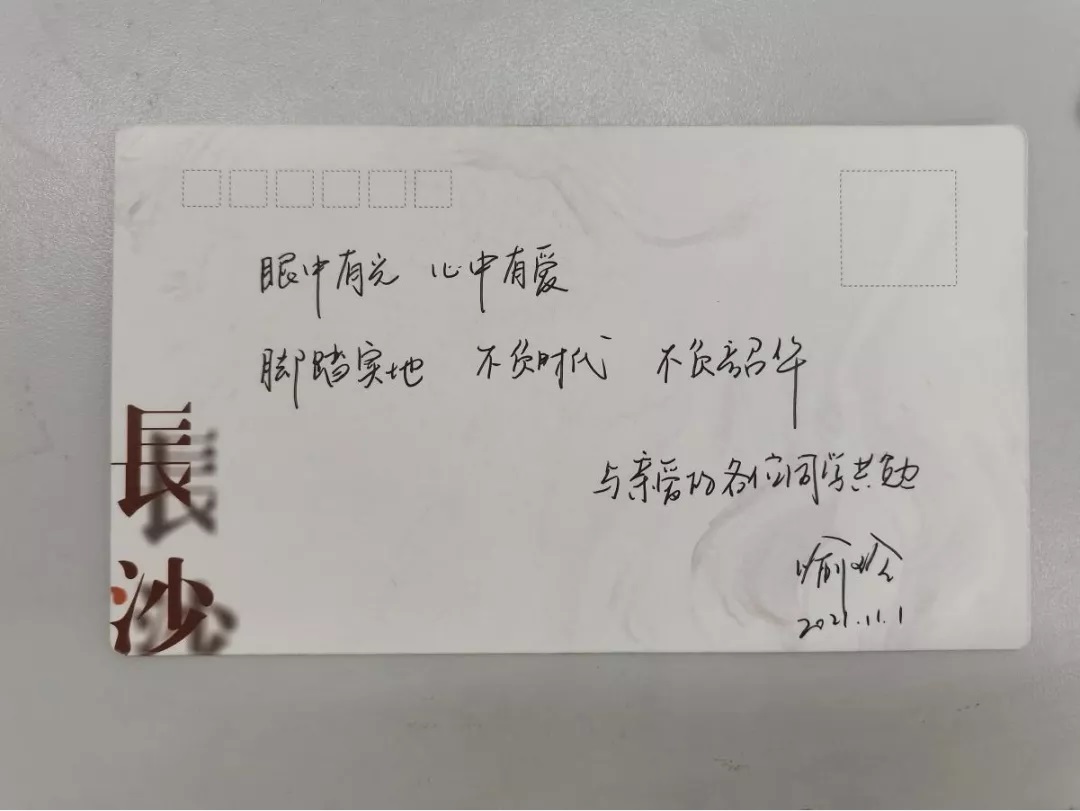 眼中有光 心中有爱
脚踏实地 不负时代 不负韶华
与亲爱的各位同学共勉
喻玲
2021.11.1
長沙